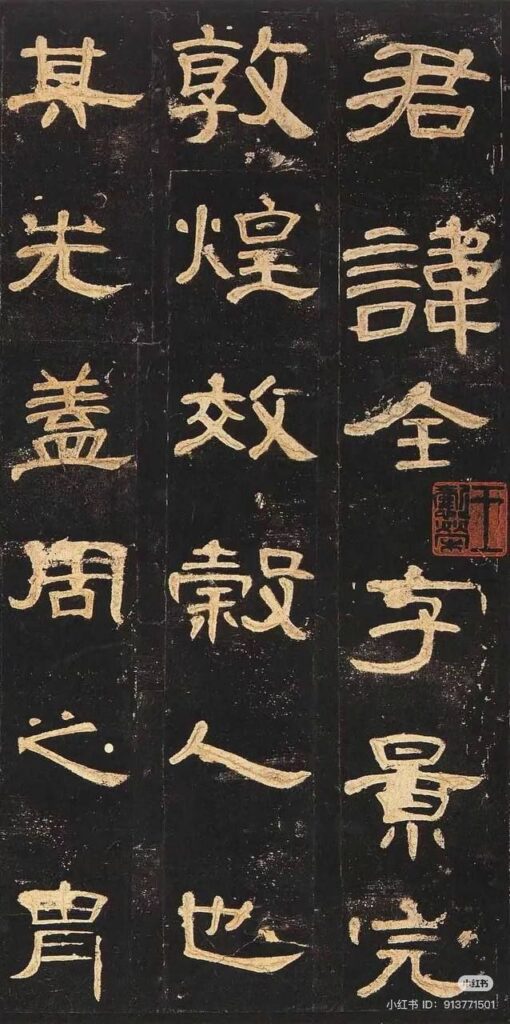 君諱全字景完
敦煌效穀人也
其先蓋周之胄
小红书
小红书 ID: 913771501